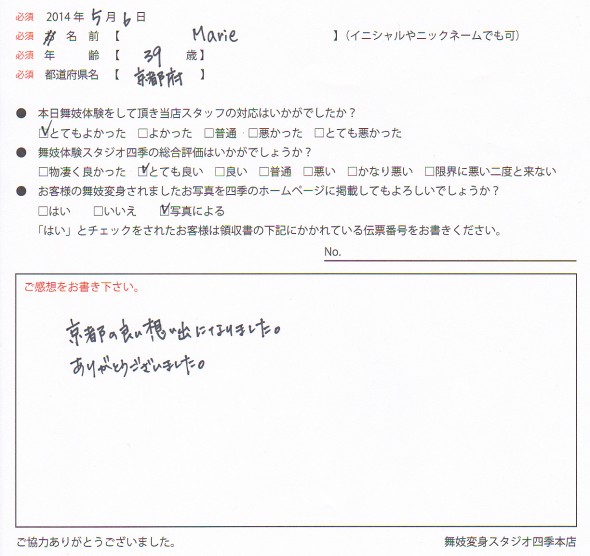 必須 2014年 5月 6日
必須 お名前【 Marie 】(イニシャルやニックネームでも可)
必須 年齢【 39 歳】
必須 都道府県名【 京都府 】
● 本日舞妓体験をして頂き当店スタッフの対応はいかがでしたか?
☑とてもよかった □よかった □普通 □悪かった □とても悪かった
● 舞妓体験スタジオ四季の総合評価はいかがでしょうか?
□物凄く良かった ☑とても良い □良い □普通 □悪い □かなり悪い □限界に悪い二度と来ない
● お客様の舞妓変身されましたお写真を四季のホームページに掲載してもよろしいでしょうか?
□はい □いいえ ☑写真による
「はい」とチェックをされたお客様は領収書の下記にかかれている伝票番号をお書きください。
No.
ご感想をお書き下さい。
京都の良い想い出になりました。
ありがとうございました。
ご協力ありがとうございました。 舞妓変身スタジオ四季本店